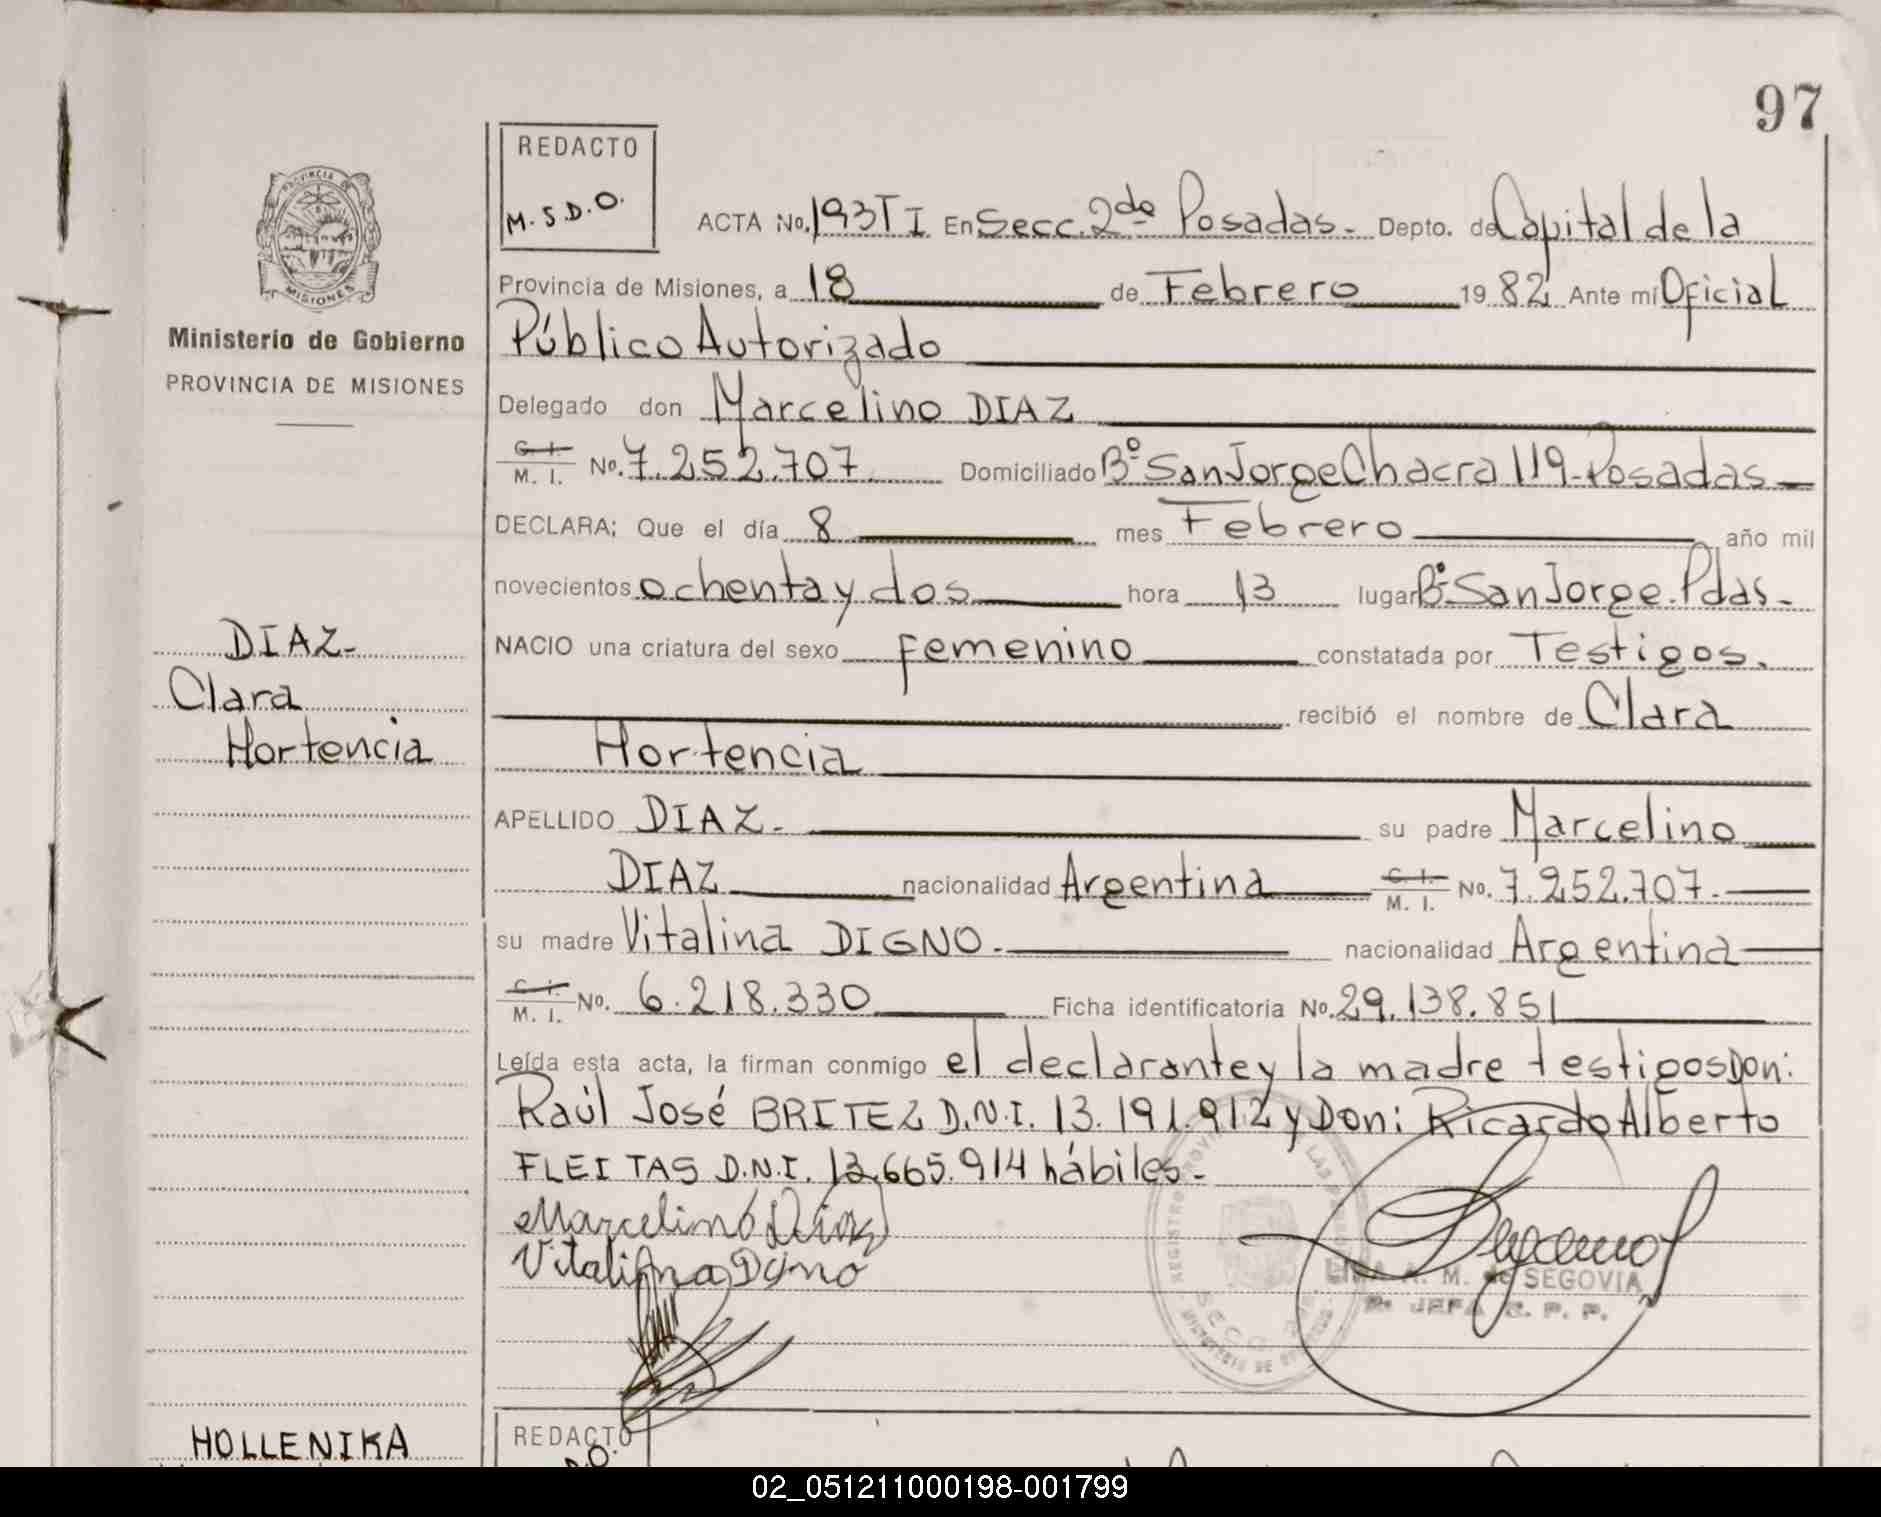 97
REDACTO
M.S.D.O.
ACTA No. 193 T I En Secc. 2do Posadas.- Depto. de Capital de la
Provincia de Misiones, a 18 de Febrero 1982 Ante mí Oficial
Público Autorizado
Delegado don Marcelino DIAZ
C. I. M. I. No. 7.252.707 Domiciliado Bº San Jorge Chacra 119-Posadas-
DECLARA; Que el día 8 mes Febrero año mil
novecientos ochenta y dos hora 13 lugar Bº San Jorge. Pdas.-
NACIO una criatura del sexo femenino constatada por Testigos.
recibió el nombre de Clara
Hortencia
APELLIDO DIAZ.- su padre Marcelino
DIAZ nacionalidad Argentina C. I. M. I. No. 7.252.707.-
su madre Vitalina DIGNO.- nacionalidad Argentina
C. I. M. I. No. 6.218.330 Ficha identificatoria No. 29.138.851
Leída esta acta, la firman conmigo el declarante y la madre testigos Don:
Raúl José BRITEZ D.N.I. 13.191.912 y Don: Ricardo Alberto
FLEITAS D.N.I. 12.665.914 hábiles.-
Marcelino Diaz
Vitalina Digno
A. M. de SEGOVIA
JEFA
PROVINCIA DE
MISIONES
Ministerio de Gobierno
PROVINCIA DE MISIONES
DIAZ-
Clara
Hortencia
HOLLENIKA
REDACTO
02_051211000198-001799